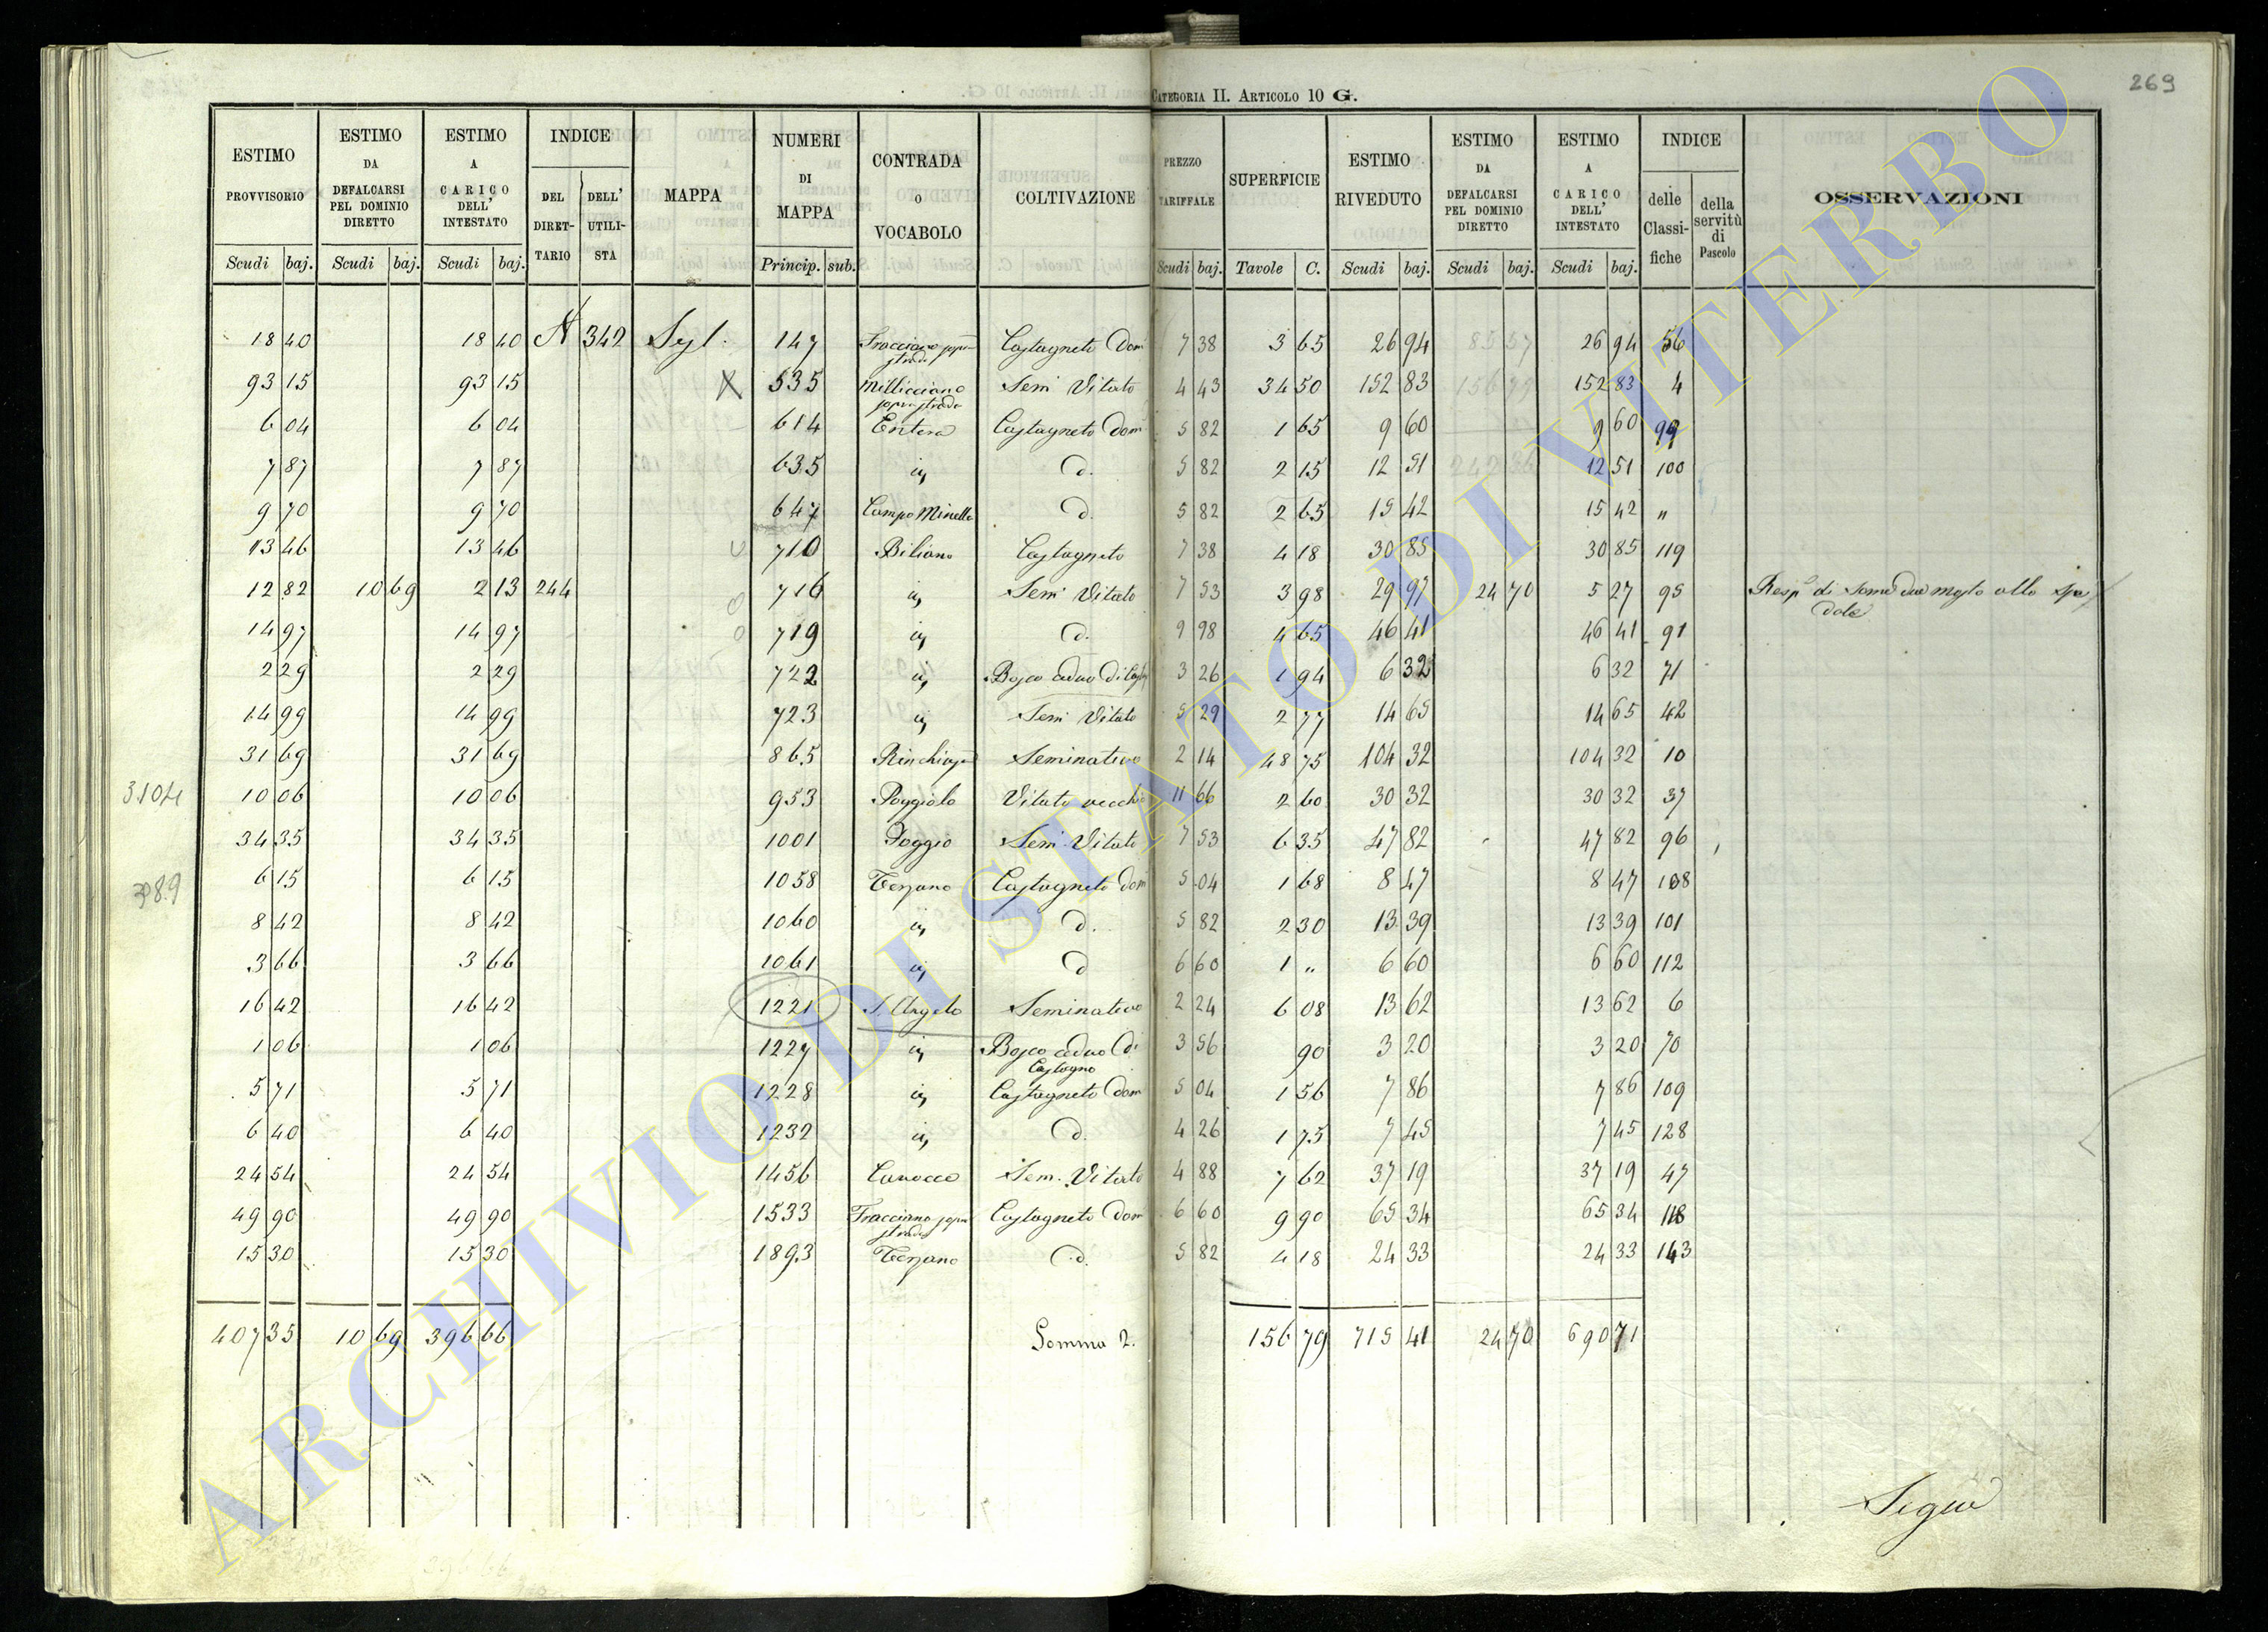 269
CATEGORIA II. ARTICOLO 10 G.
ESTIMO PROVVISORIO Scudi baj. | ESTIMO DA DEFALCARSI PEL DOMINIO DIRETTO Scudi baj. | ESTIMO A CARICO DELL' INTESTATO Scudi baj. | INDICE DEL DIRETTARIO DELL' UTILISTA | MAPPA | NUMERI DI MAPPA Princip. sub. | CONTRADA O VOCABOLO | COLTIVAZIONE | PREZZO TARIFFALE Scudi baj. | SUPERFICIE Tavole C. | ESTIMO RIVEDUTO Scudi baj. | ESTIMO DA DEFALCARSI PEL DOMINIO DIRETTO Scudi baj. | ESTIMO A CARICO DELL' INTESTATO Scudi baj. | INDICE delle Classifiche della servitù di Pascolo | OSSERVAZIONI
18 40 18 40 A 342 147 strada Castagneto Dom 7 38 3 65 26 94 26 94 56
93 15 93 15 X 535 Millicciano sopra strada Sem Vitato 4 43 34 50 152 83 152 83 4
6 04 6 04 614 Entera Castagneto Dom 5 82 1 65 9 60 9 60 99
7 87 7 87 635 d. 5 82 2 15 12 51 12 51 100
9 70 9 70 647 Campo Minello d. 5 82 2 65 15 42 15 42 "
13 46 13 46 710 Biliano Castagneto 7 38 4 18 30 85 30 85 119
12 82 10 69 2 13 244 716 Sem Vitato 7 53 3 98 29 97 24 70 5 27 95 Resp di some due mosto allo Spedale
14 97 14 97 719 d. 9 98 4 65 46 41 46 41 91
2 29 2 29 722 Bosco ceduo di Cast 3 26 1 94 6 32 6 32 71
14 99 14 99 723 Sem Vitato 5 29 2 77 14 65 14 65 42
31 69 31 69 865 Seminativo 2 14 48 75 104 32 104 32 10
3104 10 06 10 06 953 Poggiolo Vitato vecchio 11 66 2 60 30 32 30 32 37
34 35 34 35 1001 Poggio Sem. Vitato 7 53 6 35 47 82 47 82 96
6 15 6 15 1058 Terzano Castagneto Dom 5 04 1 68 8 47 8 47 108
8 42 8 42 1060 d. 5 82 2 30 13 39 13 39 101
3 66 3 66 1061 d 6 60 1 " 6 60 6 60 112
16 42 16 42 1221 S. Angelo Seminativo 2 24 6 08 13 62 13 62 6
1 06 1 06 1227 Bosco ceduo di Castagno 3 56 90 3 20 3 20 70
5 71 5 71 1228 Castagneto Dom 5 04 1 56 7 86 7 86 109
6 40 6 40 1232 d. 4 26 1 75 7 45 7 45 128
24 54 24 54 1456 Canocce Sem. Vitato 4 88 7 62 37 19 37 19 47
49 90 49 90 1533 Fracciano sopra strada Castagneto Dom 6 60 9 90 65 34 65 34 118
15 30 15 30 1893 Terzano d. 5 82 4 18 24 33 24 33 143
407 35 10 69 396 66 Somma 2. 156 79 715 41 24 70 690 71
Segue
ARCHIVIO DI STATO DI VITERBO